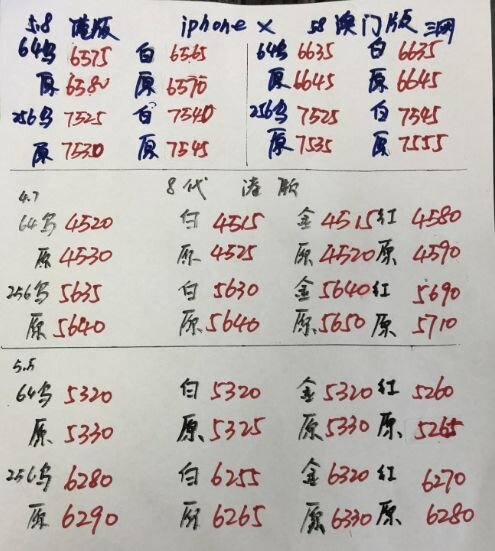 5.8 港版 iphone X 5.8 澳门版 三网
64乌 6575 白 6565 64乌 6635 白 6635
原 6580 原 6570 原 6645 原 6645
256乌 7525 白 7540 256乌 7525 白 7545
原 7530 原 7545 原 7535 原 7555
4.7 8代 港版
64乌 4520 白 4515 金 4515 红 4580
原 4530 原 4525 原 4520 原 4590
256乌 5635 白 5630 金 5640 红 5690
原 5640 原 5640 原 5650 原 5710
5.5
64乌 5320 白 5320 金 5320 红 5260
原 5330 原 5325 原 5330 原 5265
256乌 6280 白 6255 金 6320 红 6270
原 6290 原 6265 原 6330 原 6280